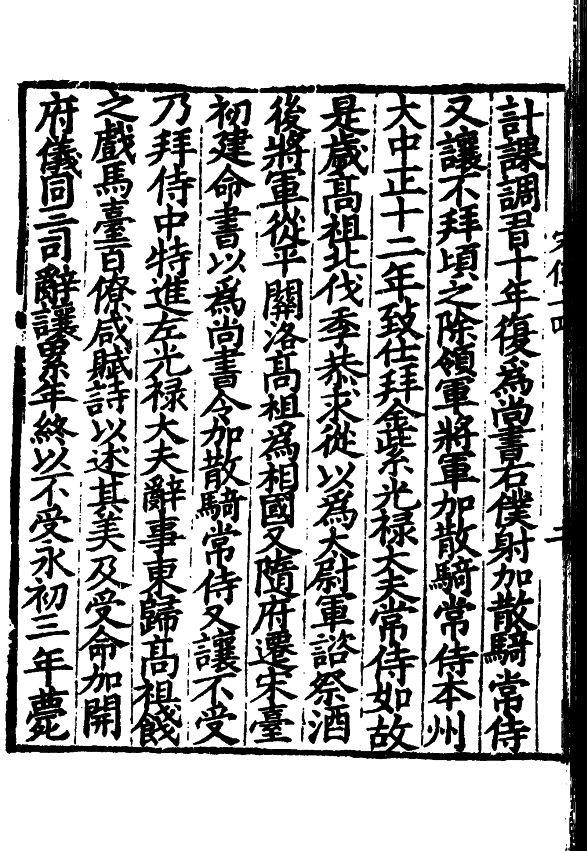 計課調習十年復爲尚書右僕射加散騎常侍
又讓不拜頃之除領軍將軍加散騎常侍本州
大中正十二年致仕拜金紫光禄大夫常侍如故
是歲髙祖北伐季恭求從以爲太尉軍諮祭酒
後將軍從平關洛髙祖爲相國又隨府遷宋臺
初建命書以爲尚書令加散騎常侍又讓不受
乃拜侍中特進左光禄大夫辭事東歸髙祖餞
之戲馬臺百僚咸賦詩以述其美及受命加開
府儀同三司辭讓累年終以不受永初三年薨